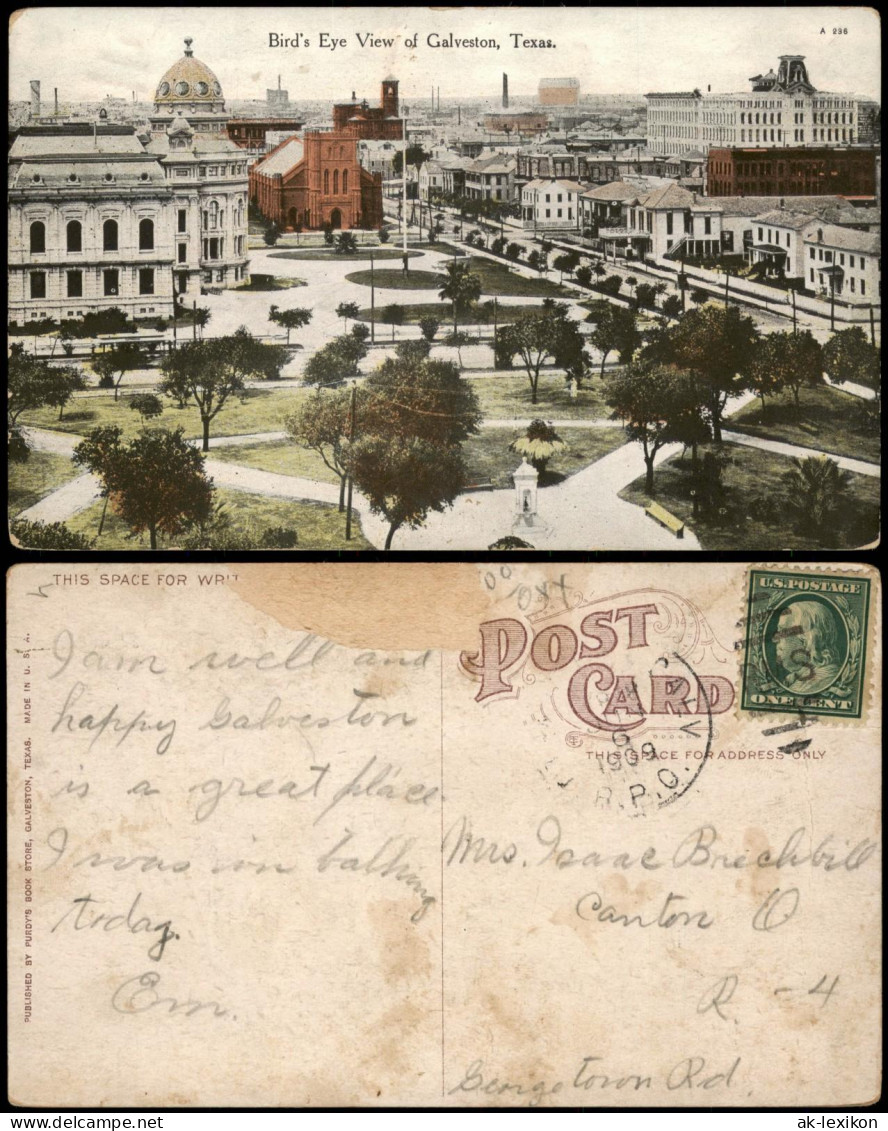 Bird's Eye View of Galveston, Texas.
A 296
THIS SPACE FOR WRIT
I am well and
happy Galveston
is a great place
I was in bathing
today.
Em.
PUBLISHED BY PURDY'S BOOK STORE, GALVESTON, TEXAS. MADE IN U. S. A.
POST
CARD
THIS SPACE FOR ADDRESS ONLY
U.S. POSTAGE
ONE CENT
6
1909
R.P.O.
Mrs. Isaac Brechbill
Canton O
R - 4
Georgetown Rd.
ak-lexikon